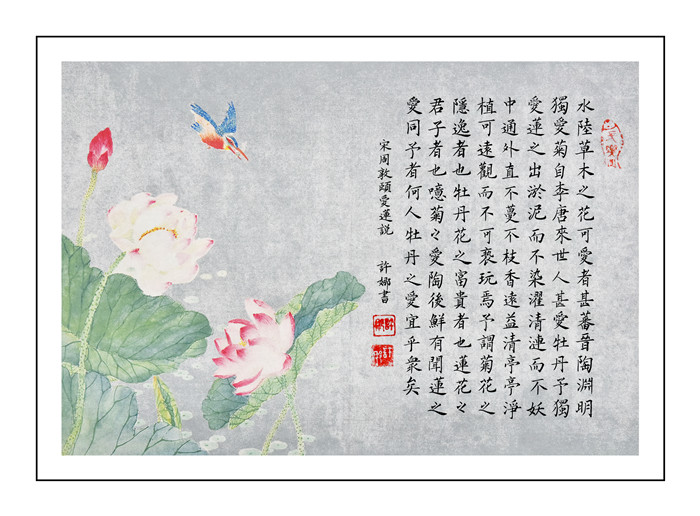 水陸草木之花可愛者甚蕃晉陶淵明
獨愛菊自李唐來世人甚愛牡丹予獨
愛蓮之出淤泥而不染濯清漣而不妖
中通外直不蔓不枝香遠益清亭亭淨
植可遠觀而不可褻玩焉予謂菊花之
隱逸者也牡丹花之富貴者也蓮花之
君子者也噫菊之愛陶後鮮有聞蓮之
愛同予者何人牡丹之愛宜乎衆矣
宋周敦頤愛蓮説
許娜書